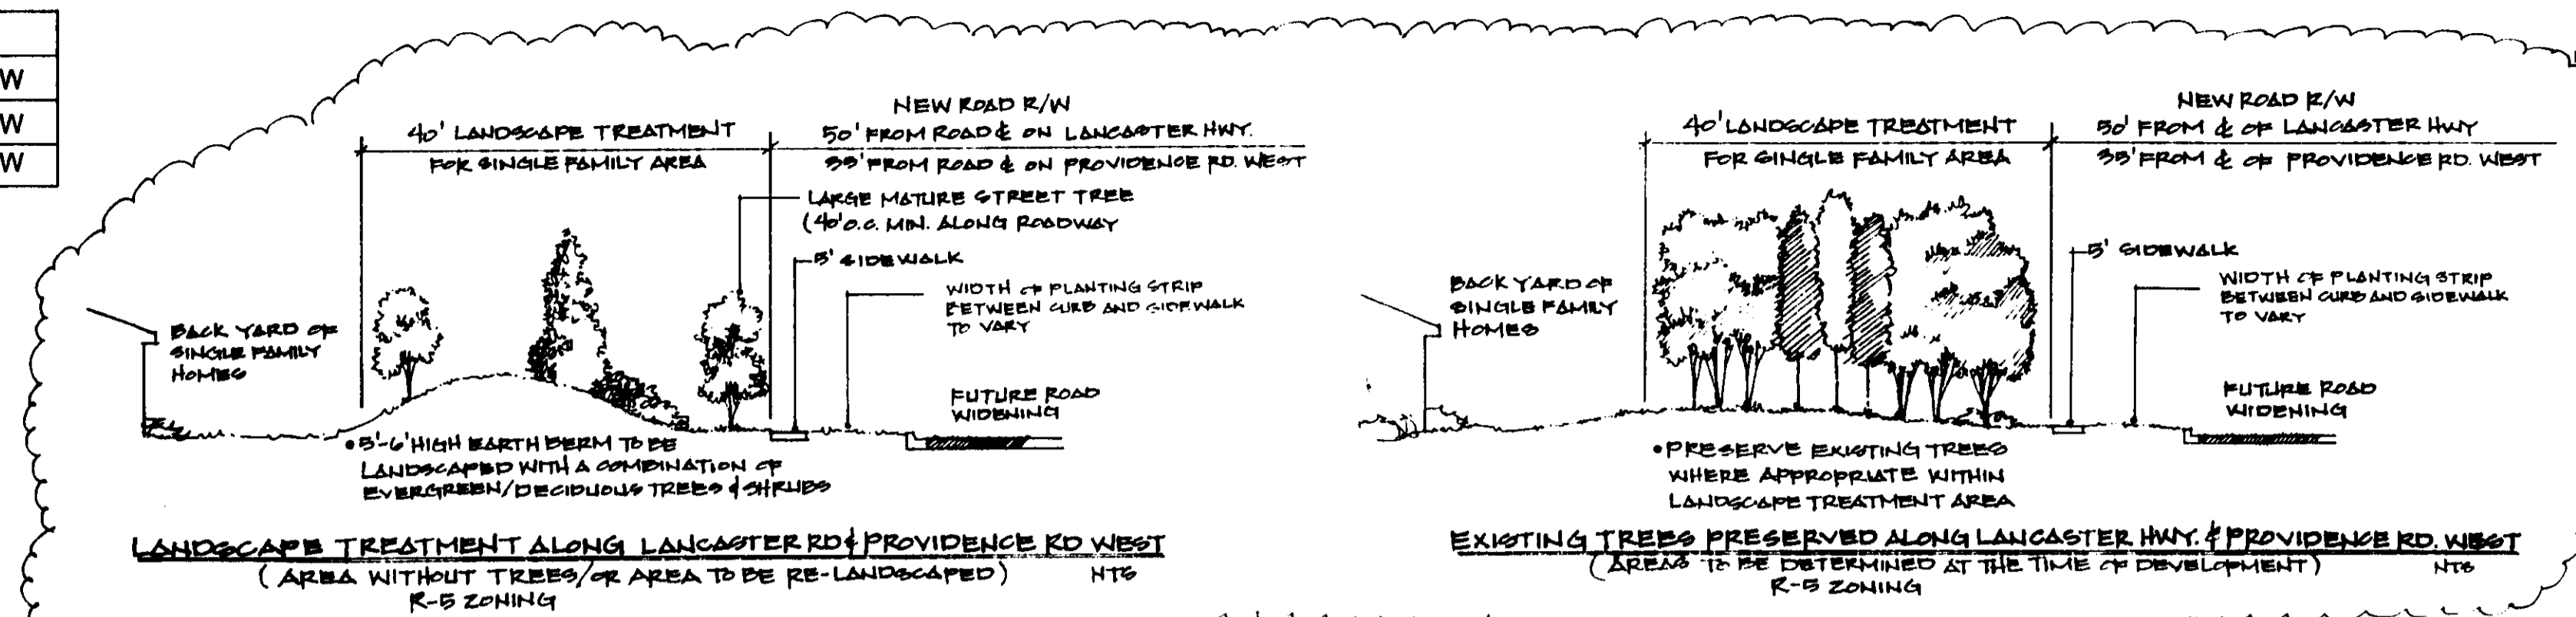 W
W
W
40' LANDSCAPE TREATMENT
FOR SINGLE FAMILY AREA
NEW ROAD R/W
50' FROM ROAD ℄ ON LANCASTER HWY.
35' FROM ROAD ℄ ON PROVIDENCE RD. WEST
LARGE MATURE STREET TREE
(40' O.C. MIN. ALONG ROADWAY
5' SIDEWALK
WIDTH OF PLANTING STRIP
BETWEEN CURB AND SIDEWALK
TO VARY
BACK YARD OF
SINGLE FAMILY
HOMES
FUTURE ROAD
WIDENING
•5'-6' HIGH EARTH BERM TO BE
LANDSCAPED WITH A COMBINATION OF
EVERGREEN/DECIDUOUS TREES & SHRUBS
LANDSCAPE TREATMENT ALONG LANCASTER RD & PROVIDENCE RD WEST
(AREA WITHOUT TREES/OR AREA TO BE RE-LANDSCAPED) NTS
R-5 ZONING
40' LANDSCAPE TREATMENT
FOR SINGLE FAMILY AREA
NEW ROAD R/W
50' FROM ℄ OF LANCASTER HWY
35' FROM ℄ OF PROVIDENCE RD. WEST
5' SIDEWALK
WIDTH OF PLANTING STRIP
BETWEEN CURB AND SIDEWALK
TO VARY
BACK YARD OF
SINGLE FAMILY
HOMES
FUTURE ROAD
WIDENING
•PRESERVE EXISTING TREES
WHERE APPROPRIATE WITHIN
LANDSCAPE TREATMENT AREA
EXISTING TREES PRESERVED ALONG LANCASTER HWY. & PROVIDENCE RD. WEST
(AREAS TO BE DETERMINED AT THE TIME OF DEVELOPMENT) NTS
R-5 ZONING